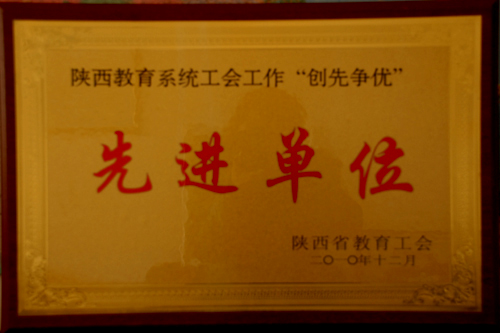 陕西教育系统工会工作“创先争优”
先进单位
陕西省教育工会
二〇一〇年十二月